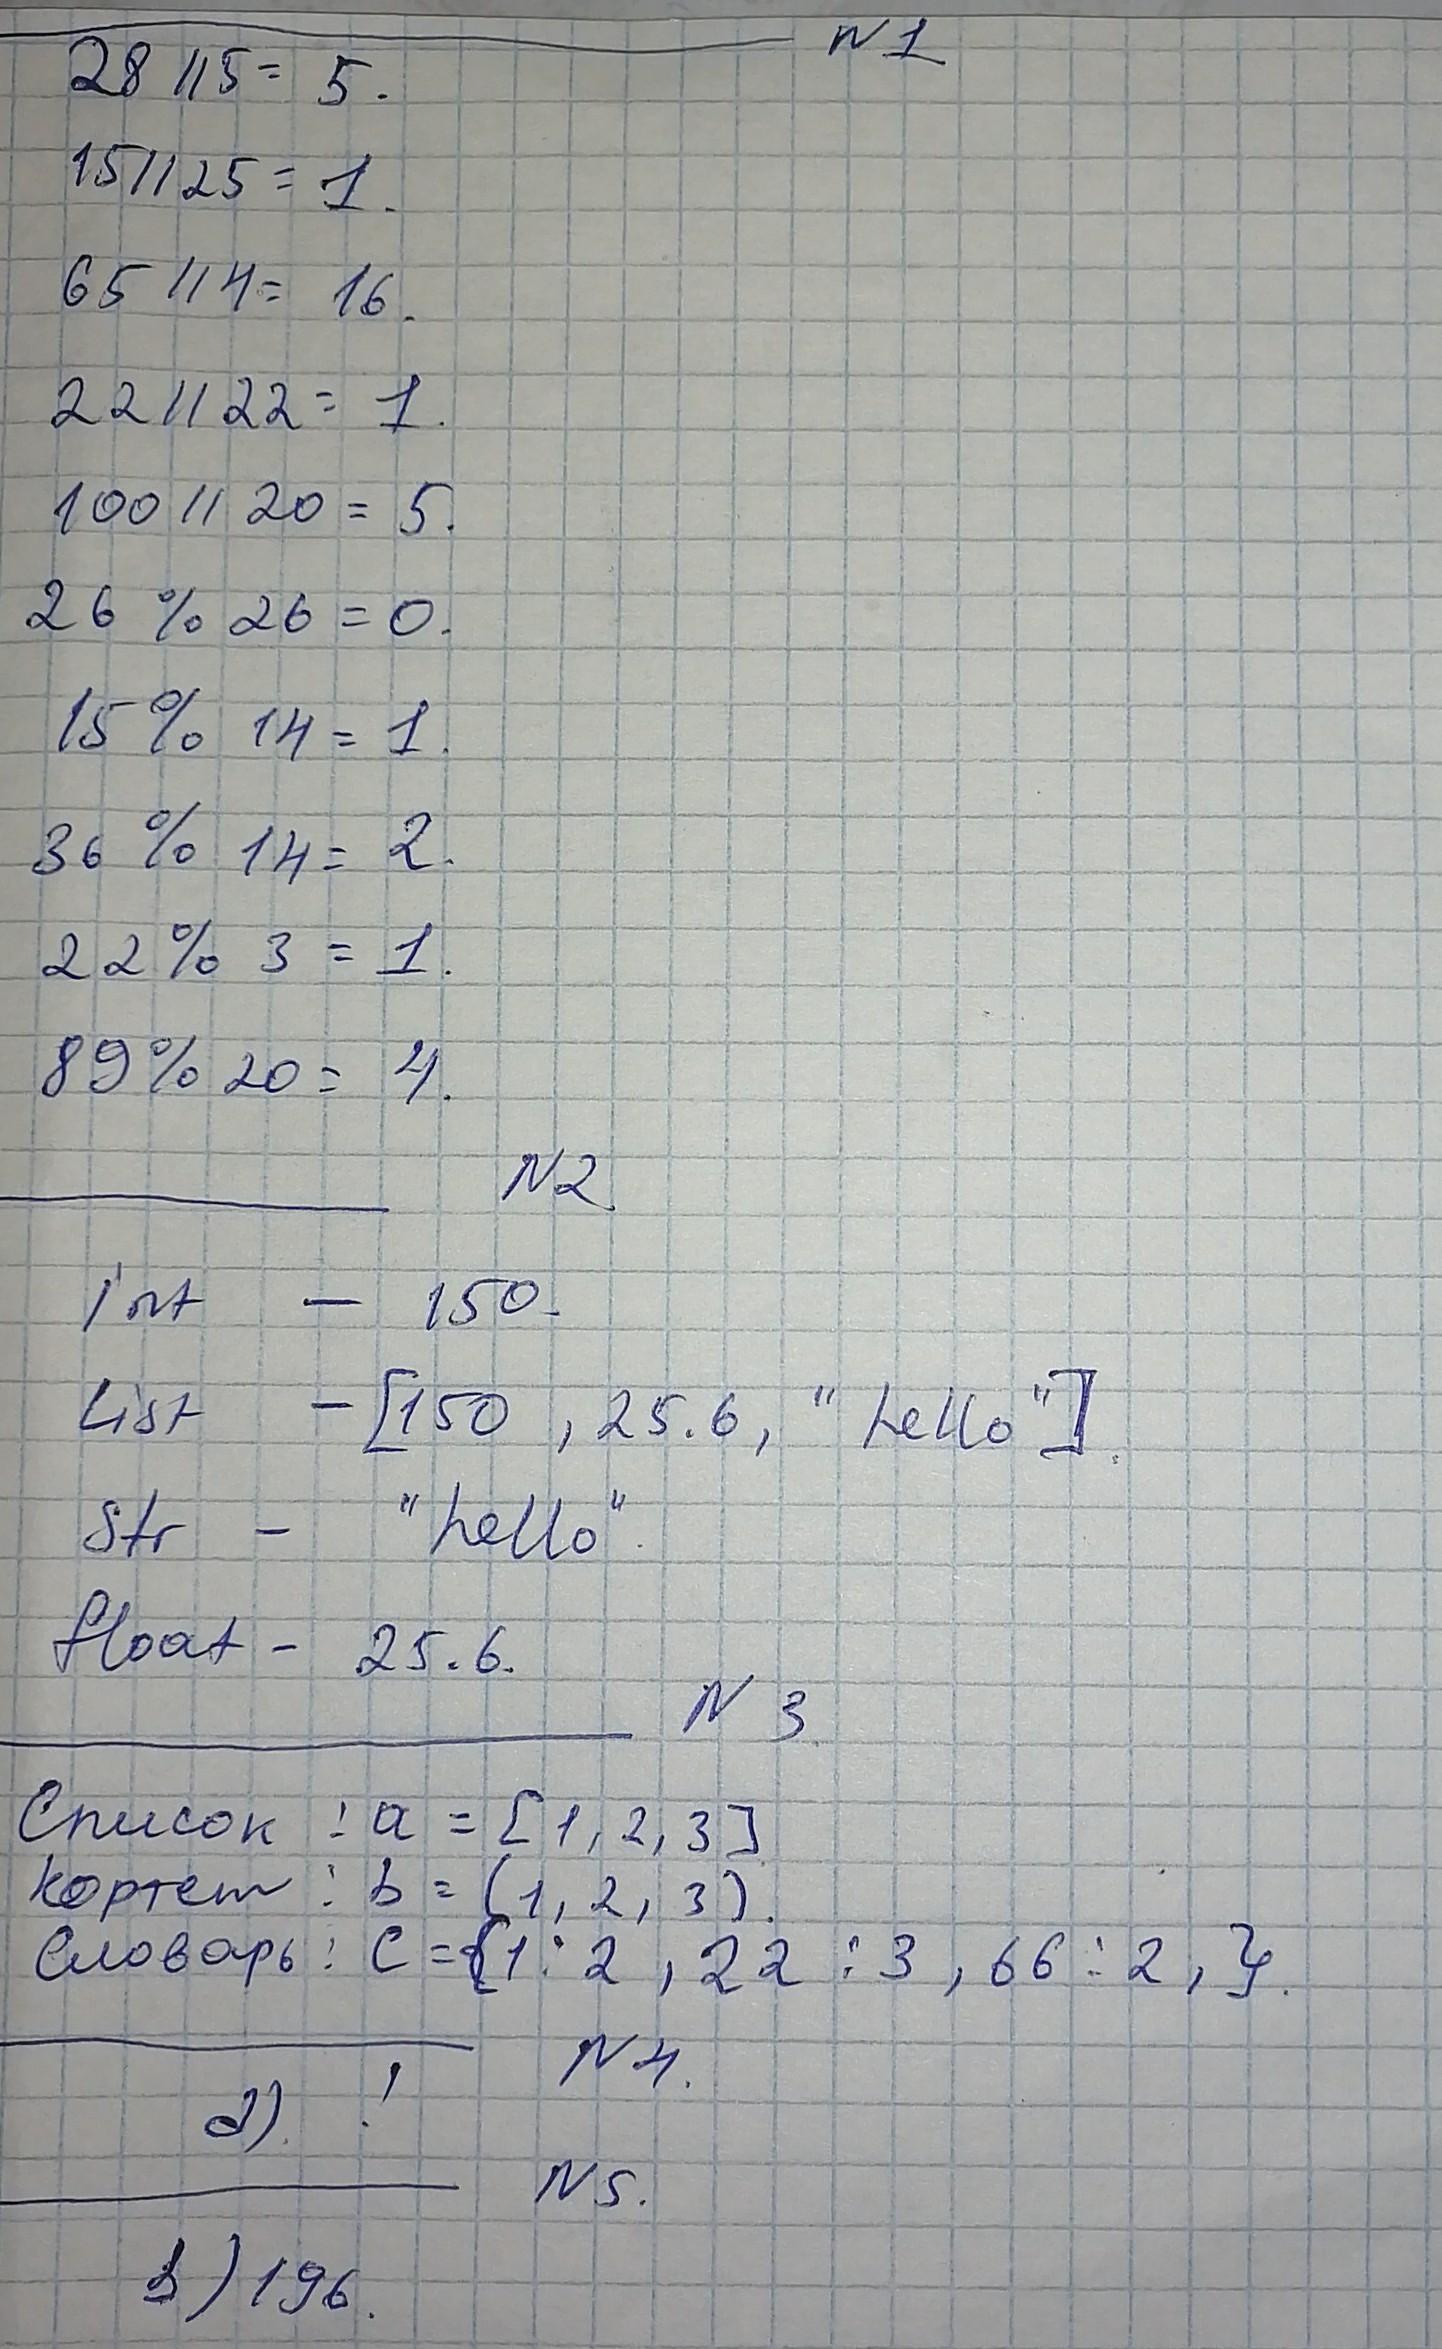 N1
28 // 5 = 5.
15 // 25 = 1.
65 // 4 = 16.
22 // 22 = 1.
100 // 20 = 5.
26 % 26 = 0.
15 % 14 = 1.
36 % 14 = 2.
22 % 3 = 1.
89 % 20 = 4.
N2
int - 150.
List - [150, 25.6, "hello"].
Str - "hello".
float - 25.6.
N 3
Список : a = [1, 2, 3]
кортеж : b = (1, 2, 3).
Словарь : C = {1 : 2, 22 : 3, 66 : 2, }.
N4.
д). !
N5.
b) 196.